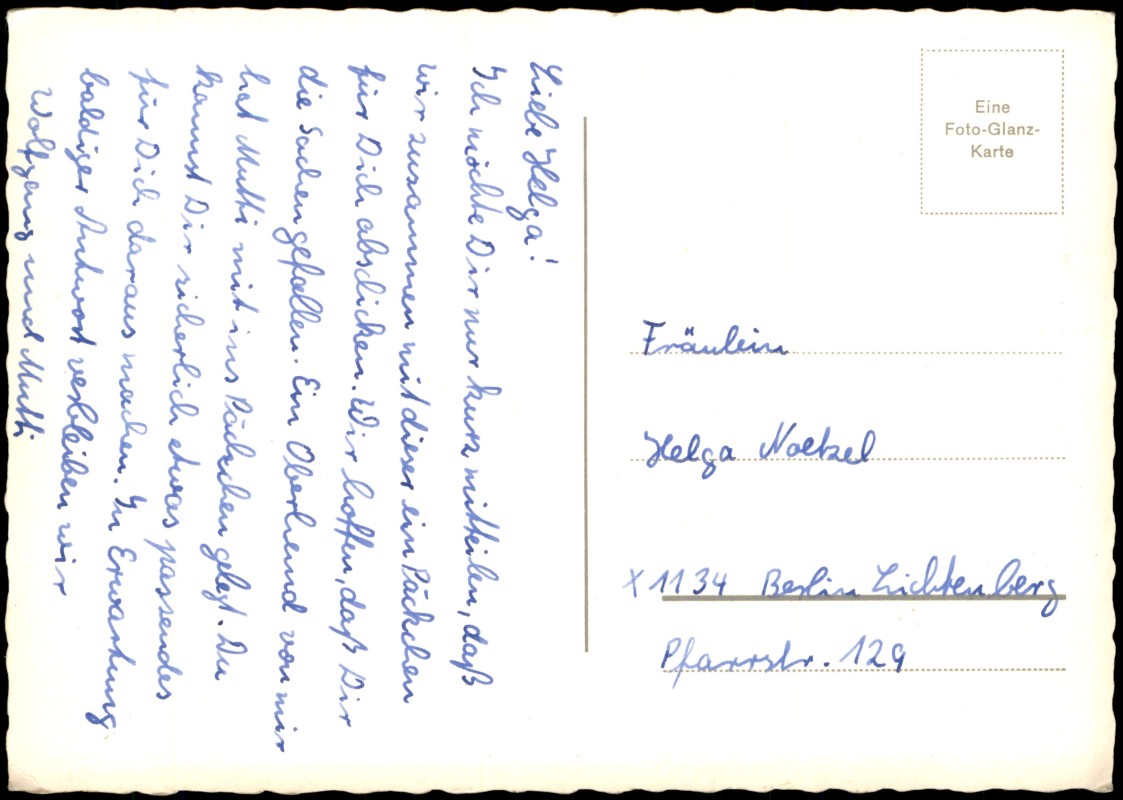 Liebe Helga!
Ich möchte Dir nur kurz mitteilen, daß
wir zusammen mit dieser ein Päckchen
für Dich abschicken. Wir hoffen, daß Dir
die Sachen gefallen. Ein Oberhemd von mir
hat Mutti mit ins Päckchen gelegt. Du
kannst Dir sicherlich etwas passendes
für Dich daraus machen. In Erwartung
baldiger Antwort verbleiben wir
Wolfgang und Mutti
Eine
Foto-Glanz-
Karte
Fräulein
Helga Noetzel
X 1134 Berlin Lichtenberg
Pfarrstr. 129